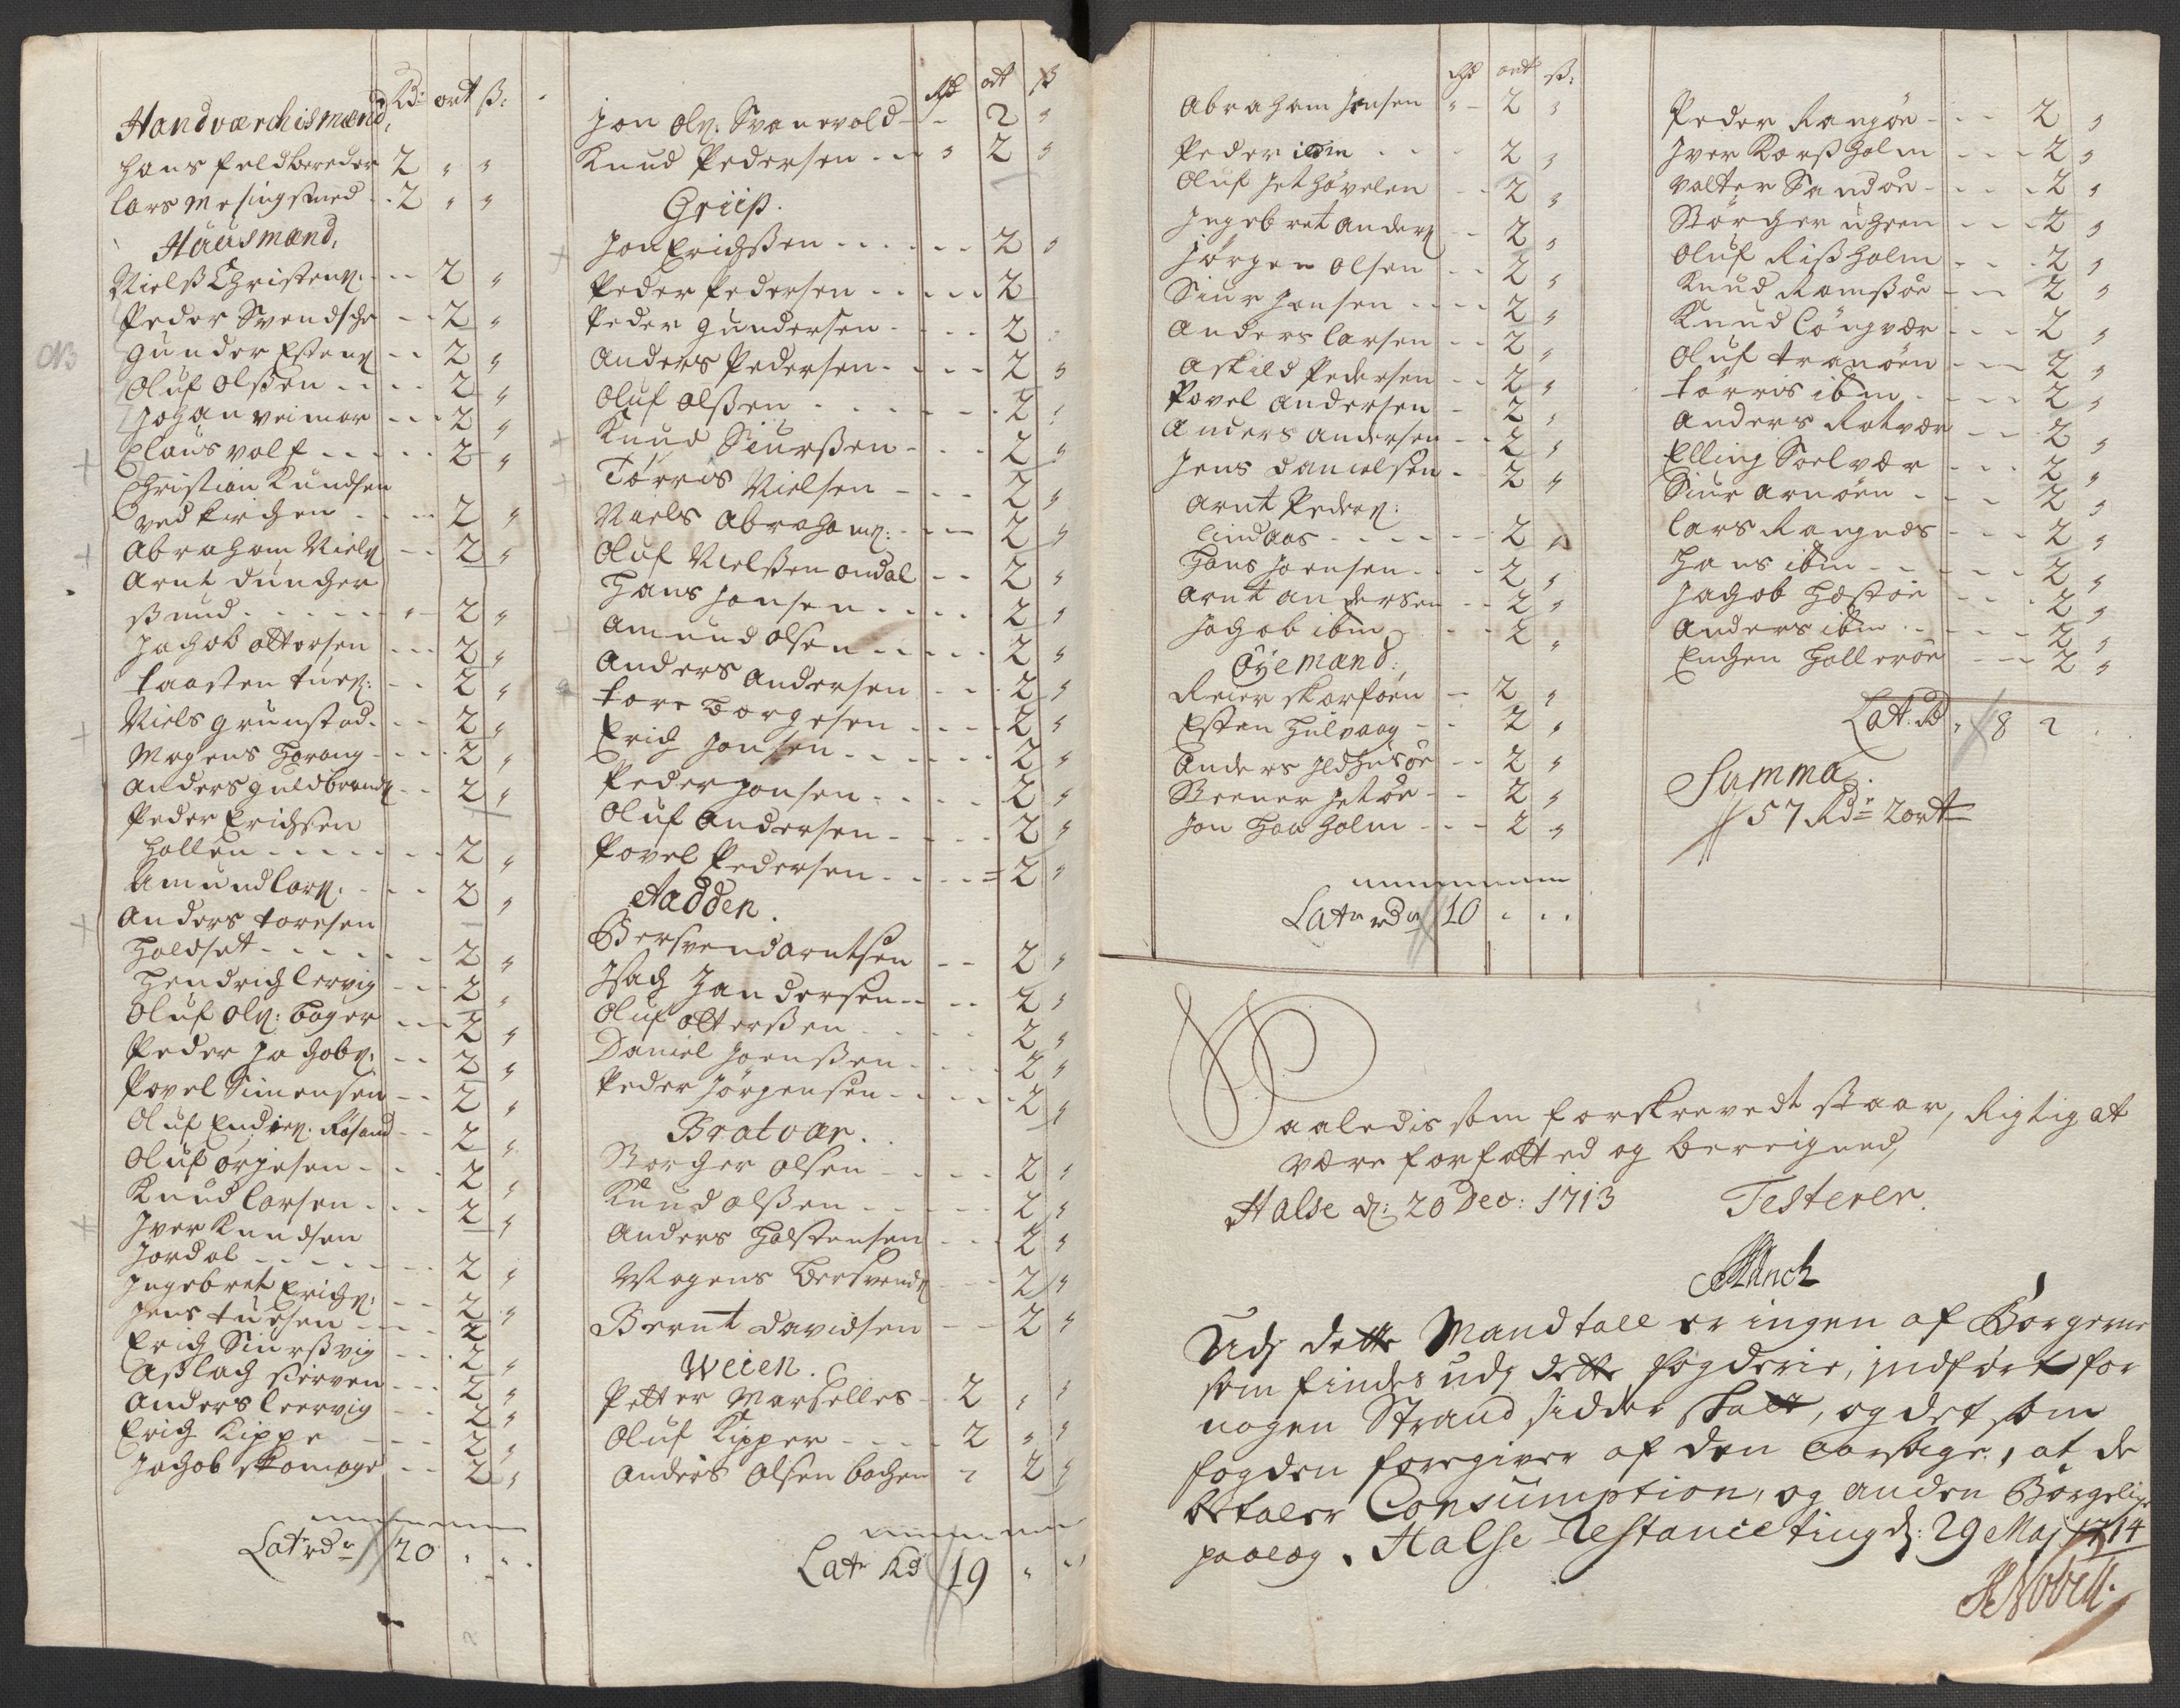 Handværchismænd, Rd: ort ß:
Hans feldbereder 2 " "
Lars Mesingsmed - 2 " "
Huusmænd,
Nielß Christens: - - 2 "
Peder Svendsche - - 2 "
NB Gunder Estens - - 2 "
Oluf Olßen - - - 2 "
Johan veimar - - 2 "
+ Claus volf - - - 2 "
Christian Knudsen
ved kirchen - - 2 "
+ Abraham Niels - - 2 "
Arnt duncher
ßmud - - - - 2 "
Jachob Ottersen - - 2 "
taasten tues: - - 2 "
+ Niels Grunstad - - 2 "
Mogens Harang - - 2 "
Anders Guldbrands - - 2 "
Peder Erichsen
Hallen - - - - 2 "
Amund Lars: - - 2 "
+ Anders toresen
Holdset - - - - 2 "
Hendrich Lervig - - 2 "
Oluf Ols: bager - - 2 "
Peder Jachobs: - - 2 "
Povel Simensen - - 2 "
Oluf Endres: Røsand - - 2 "
Oluf Ørgesen - - 2 "
Knud Larsen - - 2 "
+ Iver Knudsen
Jordal - - - - 2 "
Ingebret Erichs: - - 2 "
Jens tuesen - - 2
Erich Siurßvig - - 2 "
Aslach skerven - - 2 "
Anders Leervig - - 2 "
Erich Kippe - - 2 "
Jachob skomager - - 2 "
Latr rdr 20 " "
Rd ort ß
Jon Ols: Svanevold - - 2 "
Knud Pedersen - - " 2 "
Griip.
+ Jon Erichßen - - - 2 "
Peder Pedersen - - - 2
Peder Gundersen - - - 2
Anders Pedersen - - - 2 "
Oluf Olßen - - - 2 "
+ Knud Siurßen - - - 2 "
+ Tørris Nielsen - - - 2 "
Niels Abrahams: - - - 2 "
Oluf Nielßen omdal - - 2 "
Hans Jonsen - - - 2 "
Amund Olsen - - - 2 "
Anders Andersen - - 2 "
tore Borgesen - - - 2 "
Erich Jonsen - - - 2 "
Peder Jonsen - - - 2 "
Oluf Andersen - - - 2 "
Povel Pedersen - - - 2 "
Hadden.
Bersvend Arntsen - - 2 "
Isach Zandersen - - 2 "
Oluf Otterßen - - - 2 "
Daniel Joenßen - - - 2 "
Peder Jørgensen - - - 2 "
Bratvær.
Borger Olsen - - - 2 "
Knud Olßen - - - 2 "
Anders Holstensen - - 2 "
Mogens Bersvends - - 2 "
Bernt Davidsen - - 2 "
Weien.
Petter Marselles - 2 " "
Oluf Kipper - - 2 " "
Anders Olsen bachen - 2 "
Latr Rd 19 " "
Rd ort ß:
Abraham Jonsen " - 2 "
Peder ibm - - - 2 "
Oluf Jethøvelen - - 2 "
Ingebret Anders - - 2 "
Jørgen Olsen - - 2 "
Siur Jonsen - - - 2 "
Anders Larsen - - 2 "
Askild Pedersen - - 2 "
Povel Andersen - 2 "
Anders Andersen - - 2 "
Jens Danielsen - 2 "
Arnt Peders:
Lindaas - - - - 2 "
Hans Joensen - - - 2 "
Arnt Andersen - - 2 "
Jachob ibm - - - 2 "
Øyemænd:
Reier skarføen - 2 "
Esten Hulvaag - - 2 "
Anders Jldhusøe - - 2 "
Breener Jetøe - - 2 "
Jon Hau holm - - - 2 "
Latr rdr 10 " "
Peder Rangøe - - - 2 "
Iver Korßholm - - - 2 "
Valter Sandøe - - - 2 "
Børger ugeen - - - 2 "
Oluf Rißholm - - - 2 "
Knud Ramßøe - - 2 "
Knud Cöngvær - - - 2 "
Oluf tranøen - - - 2 "
tørris ibm - - - 2 "
Anders Rotvær - - 2 "
Elling Soelvær - - - 2 "
Siur Arnøen - - - 2 "
Lars Rangnæs - - - 2 "
Hans ibm - - - 2 "
Jachob Hestøe - - - 2 "
Anders ibm - - - 2 "
Enchen Hallerøe - - - 2 "
Lat: Rd " 8 2
Summa.
57 Rdr 2 ort
Saaledis som forskrevedt staar, Rigtig at
være forfatted og bereigned,
Halse d: 20 Dec: 1713 Testerer.
Münch
Udj dette Mandtall er ingen af Borgerne
som findes udj dette fogderie, indført for
nogen Strand sidder skatt, og det som
fogden foregiver af den aarsage, at de
betaler Consumption, og anden Borgelig
paalæg. Halse Restance ting d: 29 Maj 1714